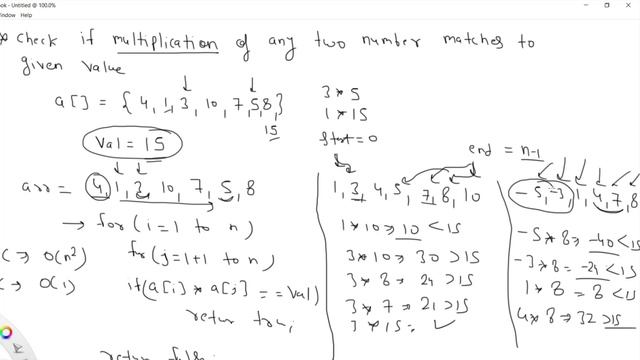 ook - Untitled @ 100.0%
Window Help
* check if multiplication of any two number matches to
given value
a[] = { 4, 1, 3, 10, 7, 5, 8, }
15
Val = 15
arr = 4, 1, 3, 10, 7, 5, 8
→ for (i=1 to n)
→ O(n²) for (j=i+1 to n)
→ O(1) if (a[i] * a[j] == val)
return true;
3 * 5
1 * 15
start = 0
end = n-1
1, 3, 4, 5, 7, 8, 10
1 * 10 ⇒ 10 < 15
3 * 10 ⇒ 30 > 15
3 * 8 = 24 > 15
3 * 7 = 21 > 15
3 * 15 = ✓
-5, -3, 1, 4, 7, 8
-5 * 8 = -40 < 15
-3 * 8 = -24 < 15
1 * 8 = 8 < 15
4 * 8 ⇒ 32 > 15